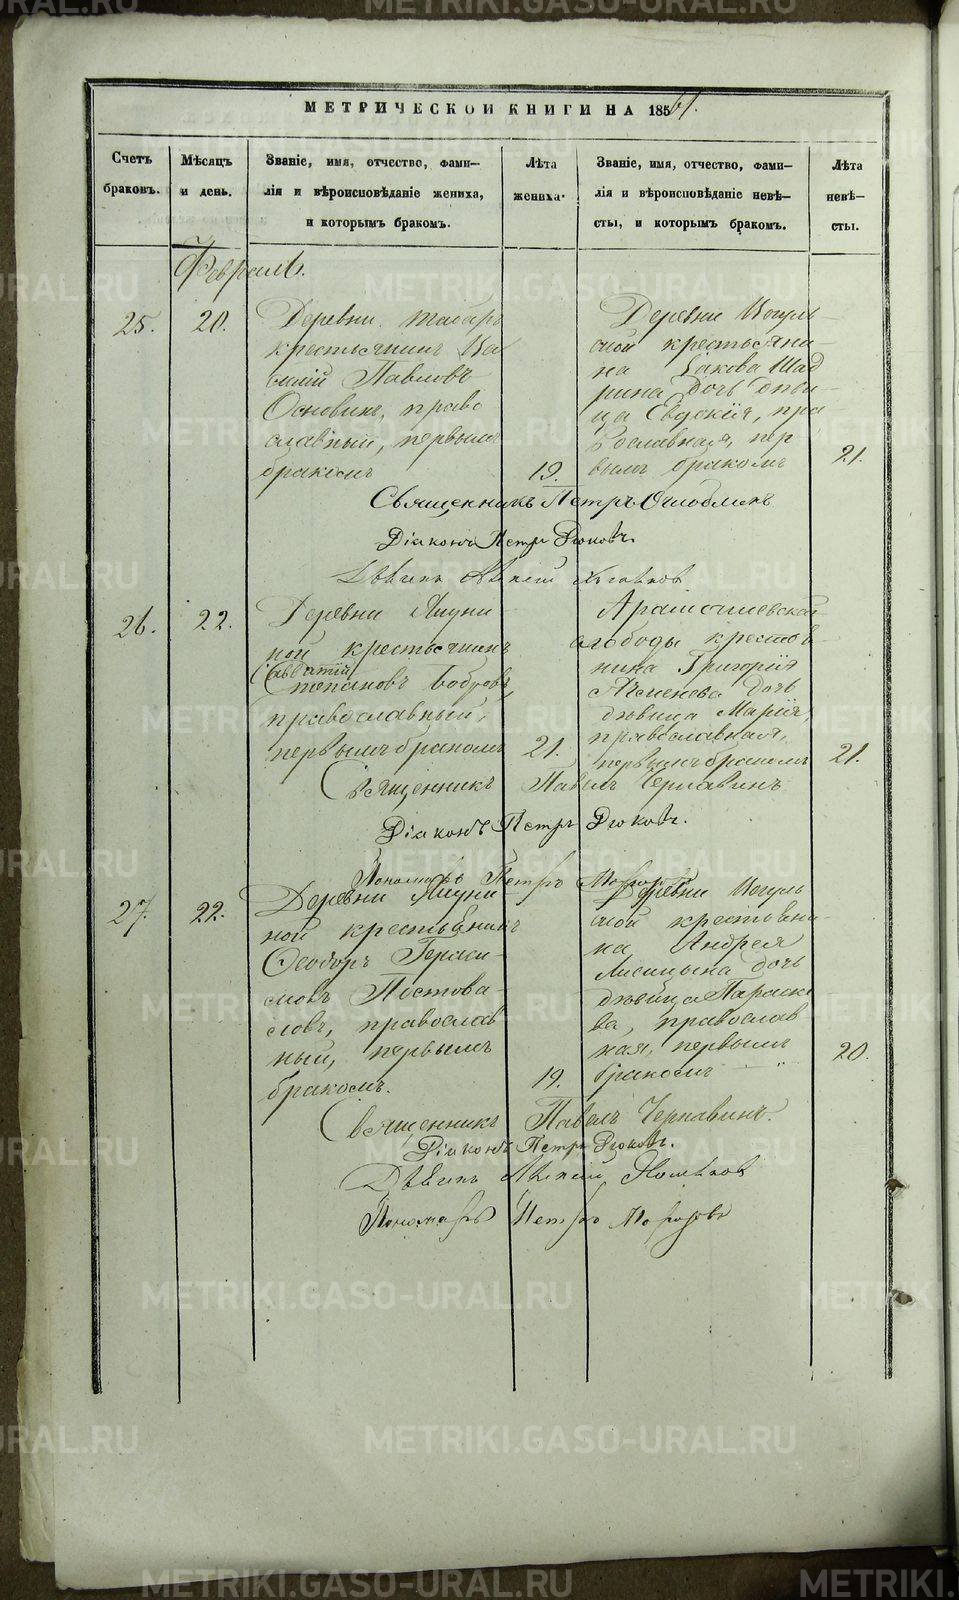 МЕТРИЧЕСКОЙ КНИГИ НА 1861.
Счетъ браковъ.
Мѣсяцъ и день.
Званіе, имя, отчество, фами-
лія и вѣроисповѣданіе жениха,
и которымъ бракомъ.
Лѣта жениха.
Званіе, имя, отчество, фами-
лія и вѣроисповѣданіе невѣ-
сты, и которымъ бракомъ.
Лѣта невѣ-
сты.
Февраль.
25.
20.
Деревни
крестьянинъ Ва
силій Павловъ
Основинъ, право
славный, первымъ
бракомъ
19.
Деревни Вогуль
ской крестьяни-
на Іакова Шад
рина дочь дѣви-
ца Евдокія, пра
вославная, пер
вымъ бракомъ
21.
Священникъ Петръ Оглоблинъ
Діаконъ Петръ
26.
22.
Деревни Ялуни
ной крестьянинъ
Савватій
Степановъ Бобровъ,
православный,
первымъ бракомъ
21.
Арамашевской
слободы крестья
нина Григорія
дочь
дѣвица Марія,
православная,
первымъ бракомъ
21.
Священникъ Павелъ Чернавинъ
Діаконъ Петръ
Пономарь Петръ Морозовъ
27.
22.
Деревни Ялуни
ной крестьянинъ
Ѳеодоръ Гераси-
мовъ Постова-
ловъ, православ
ный, первымъ
бракомъ.
19.
Деревни Вогуль
ской крестьяни-
на Андрея
Лисицына дочь
дѣвица Параске
ва, православ
ная, первымъ
бракомъ
20.
Священникъ Павелъ Чернавинъ.
Діаконъ Петръ
Пономарь Петръ Морозовъ
METRIKI.GASO-URAL.RU